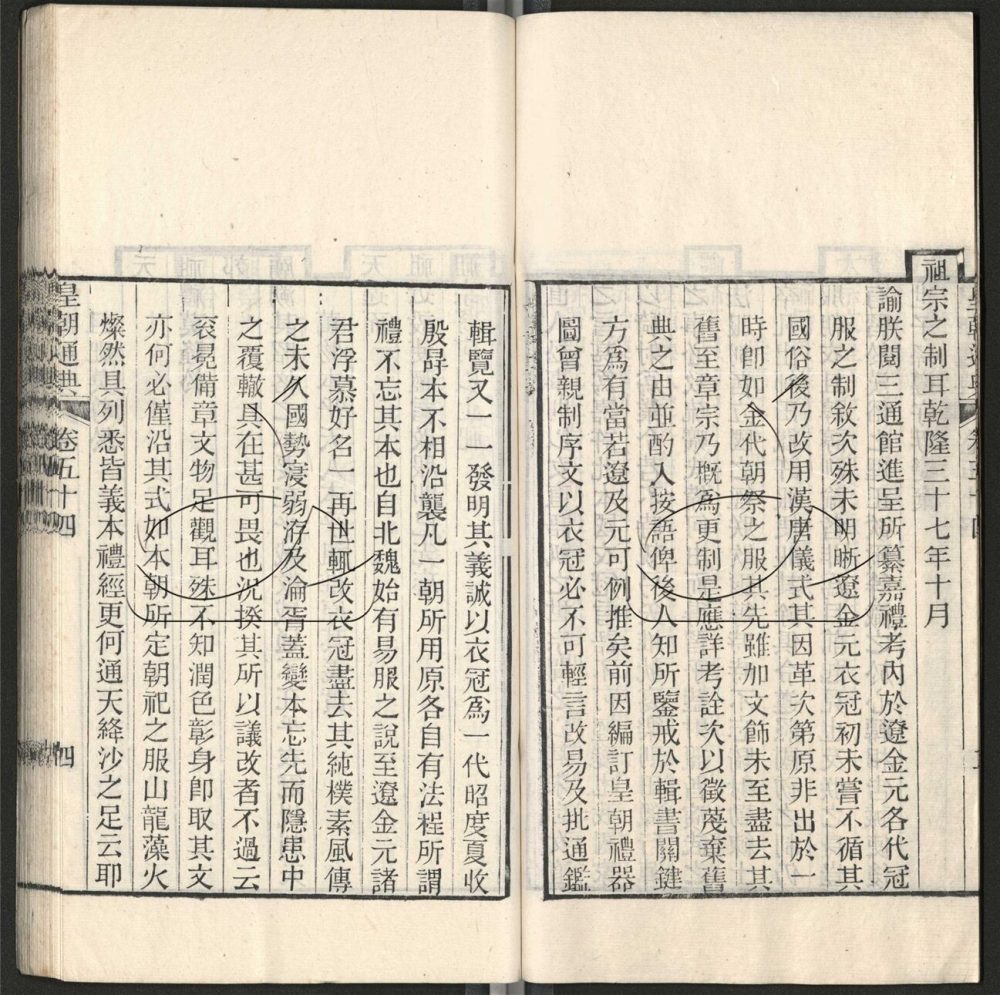 祖宗之制耳乾隆三十七年十月
諭朕閱三通館進呈所纂嘉禮考內於遼金元各代冠
服之制敘次殊未明晰遼金元衣冠初未嘗不循其
國俗後乃改用漢唐儀式其因革次第原非出於一
時卽如金代朝祭之服其先雖加文飾未至盡去其
舊至章宗乃概爲更制是應詳考詮次以徵蔑棄舊
典之由並酌入按語俾後人知所鑒戒於輯書關鍵
方爲有當若遼及元可例推矣前因編訂皇朝禮器
圖曾親制序文以衣冠必不可輕言改易及批通鑑
輯覽又一一發明其義誠以衣冠爲一代昭度夏收
殷冔本不相沿襲凡一朝所用原各自有法程所謂
禮不忘其本也自北魏始有易服之說至遼金元諸
君浮慕好名一再世輒改衣冠盡去其純樸素風傳
之未久國勢寖弱洊及淪胥蓋變本忘先而隱患中
之覆轍具在甚可畏也況揆其所以議改者不過云
袞冕備章文物足觀耳殊不知潤色彰身卽取其文
亦何必僅沿其式如本朝所定朝祀之服山龍藻火
燦然具列悉皆義本禮經更何通天絳沙之足云耶
皇朝通典 卷五十四 四